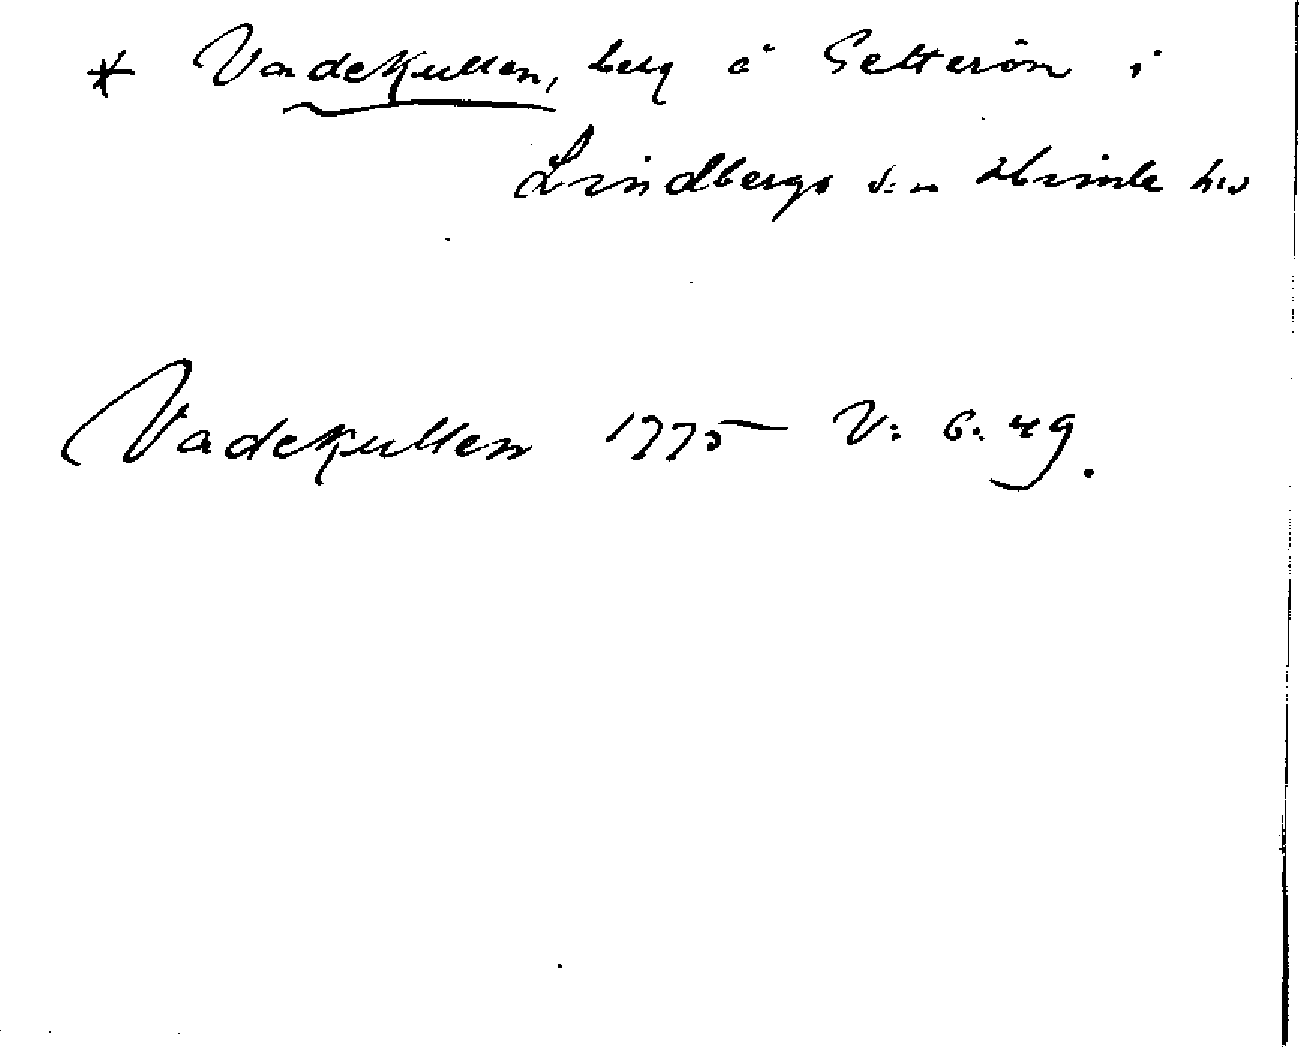 * Vadekullen, berg å Getterön i
Lindbergs s:n Himle hd
Vadekullen 1775 V: 6: 49.